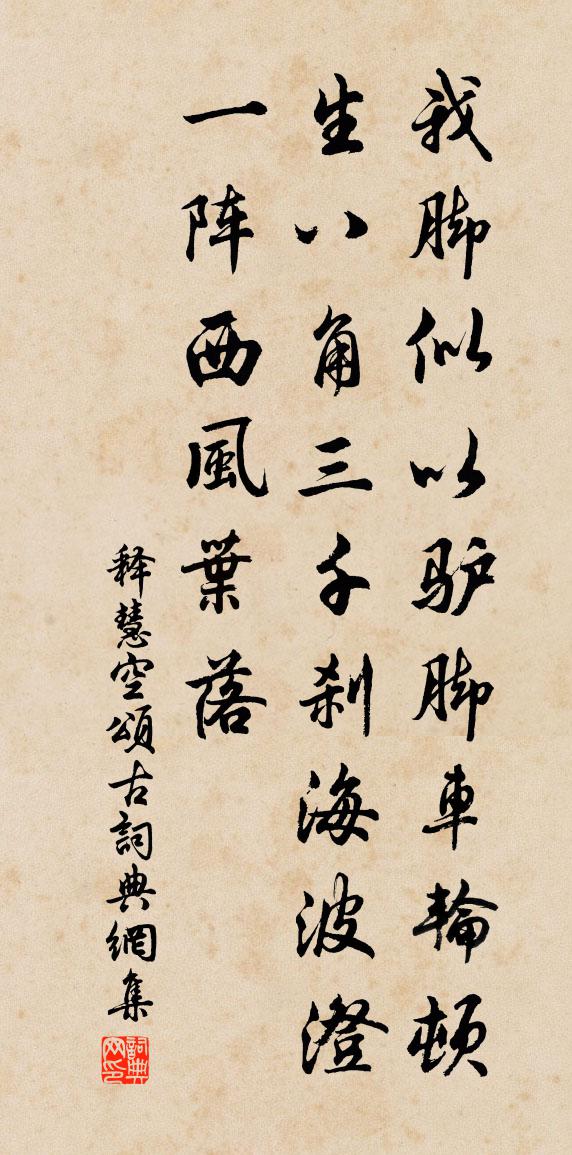 我脚似以驴脚車輪頓
生八角三千刹海波澄
一阵西風葉落
释慧空頌古詞典網集
詞典网印